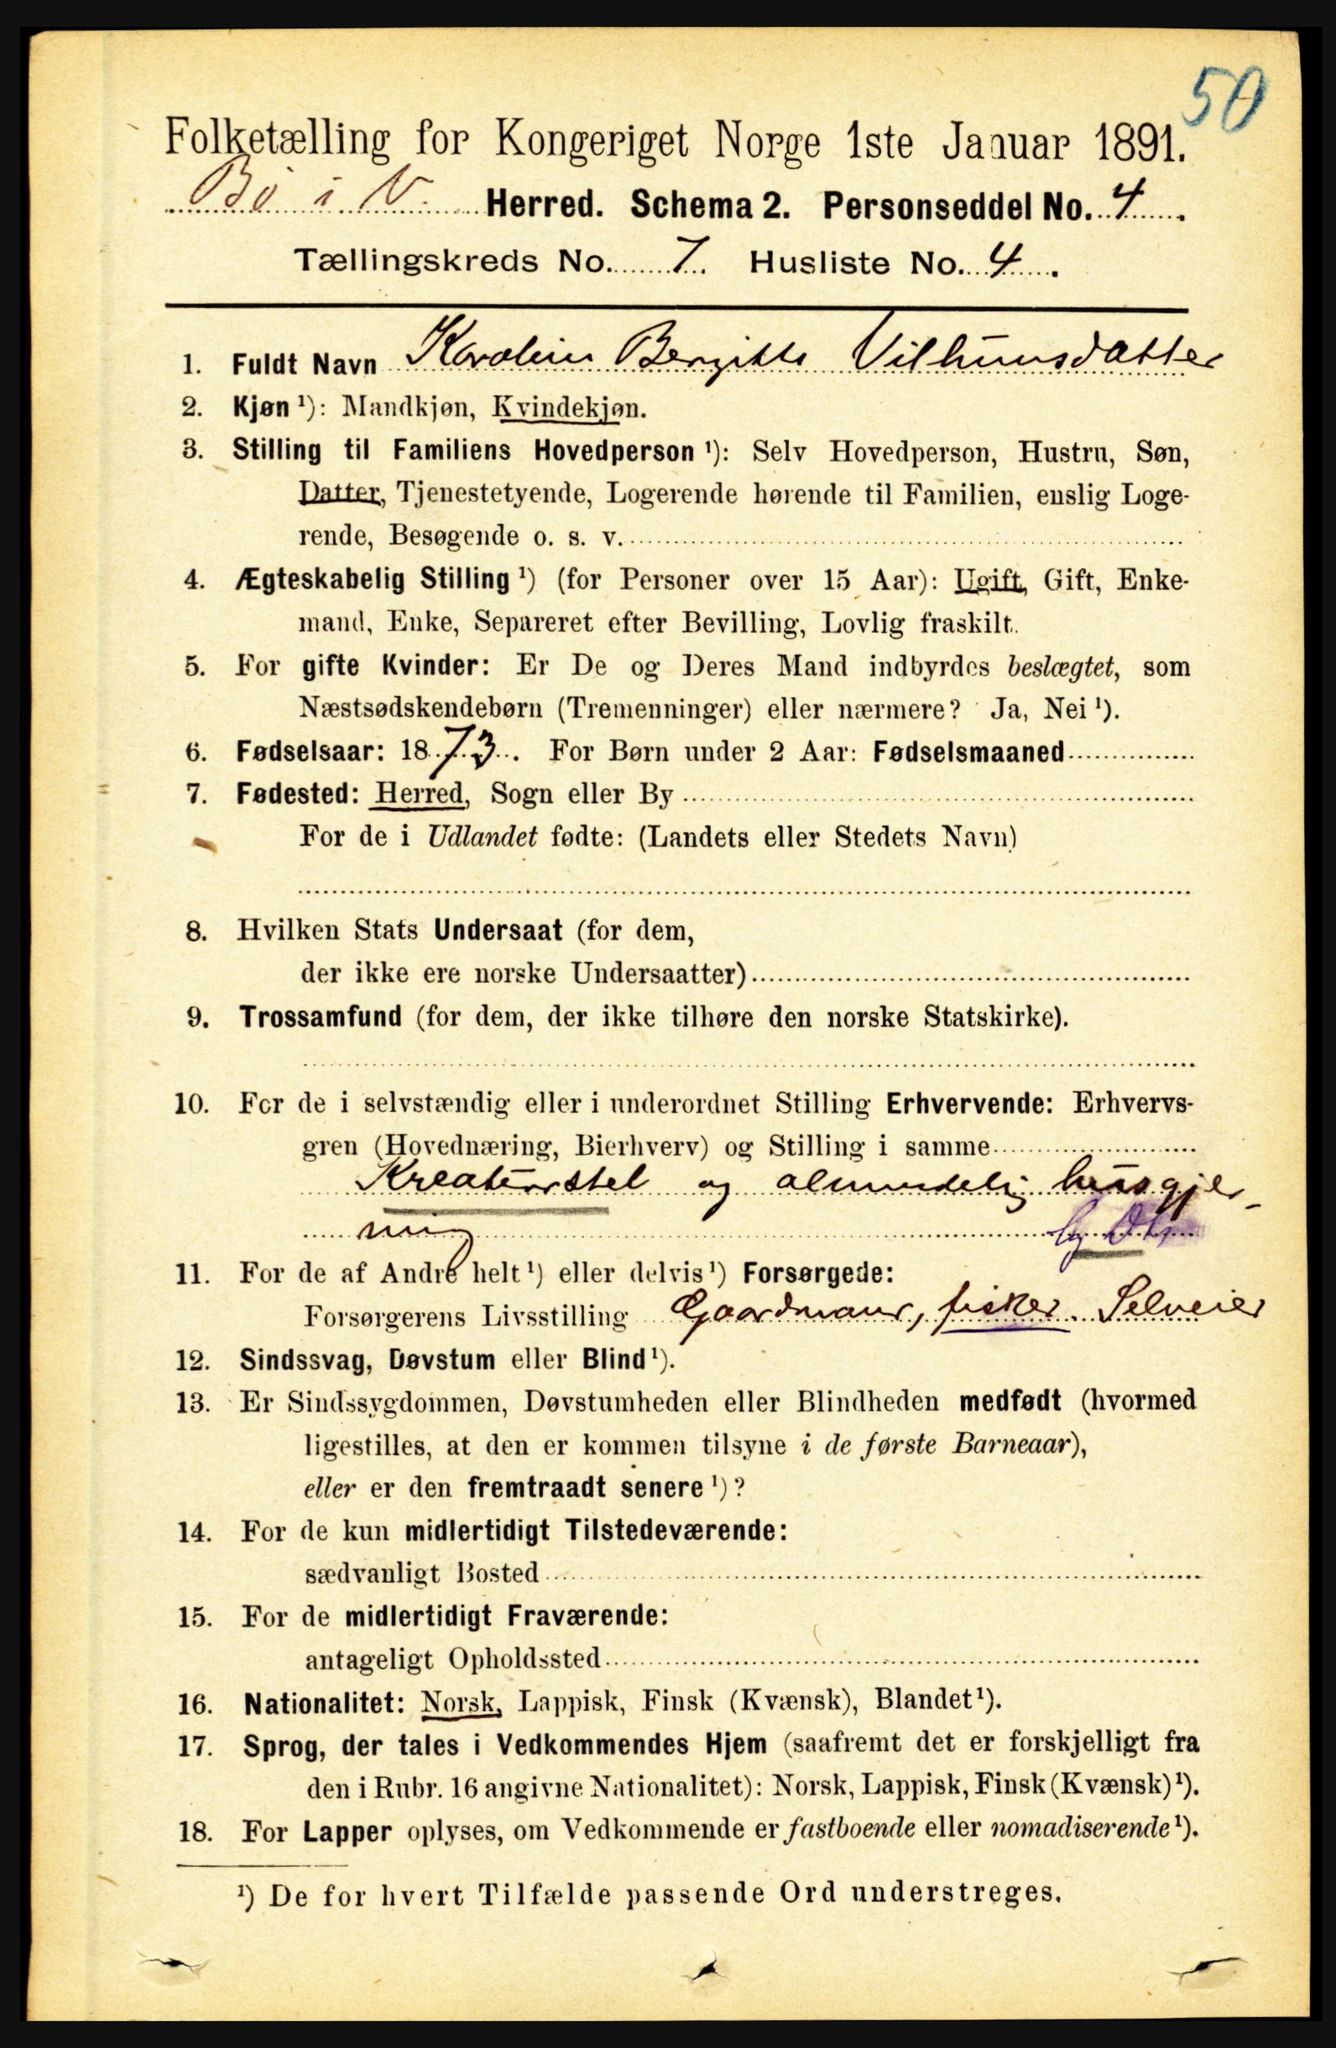 50
Folketælling for Kongeriget Norge 1ste Januar 1891.
Bø i V. Herred. Schema 2. Personseddel No. 4.
Tællingskreds No. 7. Husliste No. 4.
1. Fuldt Navn Karoline Bergitte Vilhumsdatter
2. Kjøn ¹): Mandkjøn, Kvindekjøn.
3. Stilling til Familiens Hovedperson ¹): Selv Hovedperson, Hustru, Søn,
Datter, Tjenestetyende, Logerende hørende til Familien, enslig Loge-
rende, Besøgende o. s. v.
4. Ægteskabelig Stilling ¹) (for Personer over 15 Aar): Ugift, Gift, Enke-
mand, Enke, Separeret efter Bevilling, Lovlig fraskilt.
5. For gifte Kvinder: Er De og Deres Mand indbyrdes beslægtet, som
Næstsødskendebørn (Tremenninger) eller nærmere? Ja, Nei ¹).
6. Fødselsaar: 1873. For Børn under 2 Aar: Fødselsmaaned
7. Fødested: Herred, Sogn eller By
For de i Udlandet fødte: (Landets eller Stedets Navn)
8. Hvilken Stats Undersaat (for dem,
der ikke ere norske Undersaatter)
9. Trossamfund (for dem, der ikke tilhøre den norske Statskirke).
10. For de i selvstændig eller i underordnet Stilling Erhvervende: Erhvervs-
gren (Hovednæring, Bierhverv) og Stilling i samme
Kreaturstel og almindelig husgjer-
ning
11. For de af Andre helt ¹) eller delvis ¹) Forsørgede:
Forsørgerens Livsstilling Gaardmand, fisker. Selveier
12. Sindssvag, Døvstum eller Blind ¹).
13. Er Sindssygdommen, Døvstumheden eller Blindheden medfødt (hvormed
ligestilles, at den er kommen tilsyne i de første Barneaar),
eller er den fremtraadt senere ¹)?
14. For de kun midlertidigt Tilstedeværende:
sædvanligt Bosted
15. For de midlertidigt Fraværende:
antageligt Opholdssted
16. Nationalitet: Norsk, Lappisk, Finsk (Kvænsk), Blandet ¹).
17. Sprog, der tales i Vedkommendes Hjem (saafremt det er forskjelligt fra
den i Rubr. 16 angivne Nationalitet): Norsk, Lappisk, Finsk (Kvænsk) ¹).
18. For Lapper oplyses, om Vedkommende er fastboende eller nomadiserende ¹).
¹) De for hvert Tilfælde passende Ord understreges.